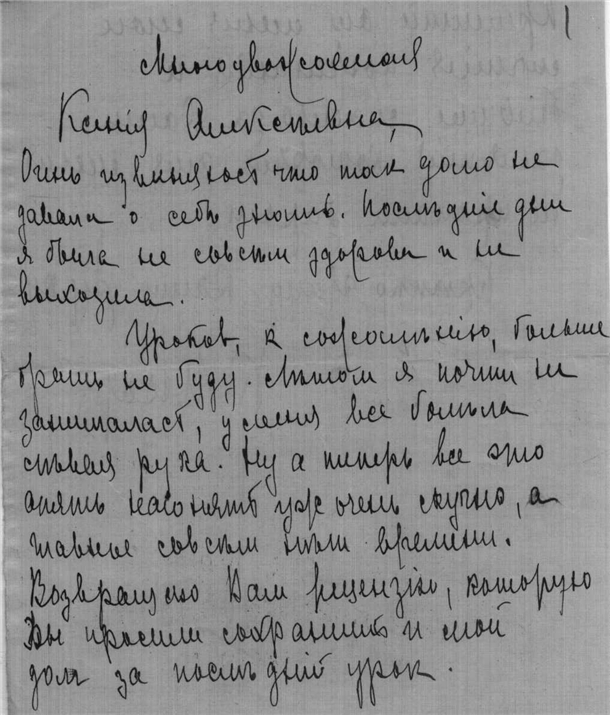 1
Многоуважаемая
Ксенія Алексѣевна,
Очень извиняюсь что так долго не
давала о себѣ знать. Послѣдніе дни
я была не совсѣм здорова и не
выходила.
Уроков, к сожалѣнію, больше
брать не буду. Лѣтом я почти не
занималась, у меня все болѣла
лѣвая рука. Ну а теперь все это
опять нагонять уж очень скучно, а
главное совсѣм нѣт времени.
Возвращаю Вам рецензію, которую
Вы просили сохранить и мой
долг за послѣдній урок.